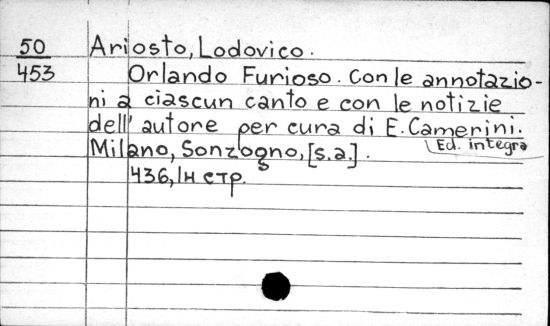 50
453
Ariosto, Lodovico.
Orlando Furioso. Con le annotazio-
ni a ciascun canto e con le notizie
dell' autore per cura di E. Camerini.
Ed. integra
Milano, Sonzogno, [s.a.].
436, 1н стр.